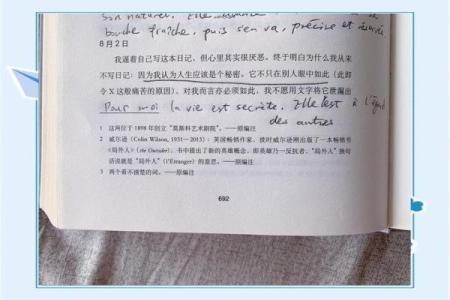 son naturel. Elle
bouche fraîche, puis s'en va, précise et
8月2日
我逼着自己写这本日记，但心里其实很厌恶。终于明白为什么我从来
不写日记：因为我认为人生应该是个秘密。它不只在别人眼中如此（此即
令X这般痛苦的原因），对我而言亦必须如此，我不愿用文字将它泄漏出
Pour moi la vie est secrète. Elle l'est à l'égard
des autres
1 这两位于1898年创立“莫斯科艺术剧院”。——原编注
2 威尔逊（Colin Wilson, 1931—2013）：英国畅销作家，彼时威尔逊刚出版了一本畅销书
《局外人》（the Outsider），书中提出了新的英雄概念，即英雄乃一反抗者，“局外人”换句
话说就是“局外人”（l'Étranger）的意思。——原编注
3 两个看不清楚的词。——原编注
692